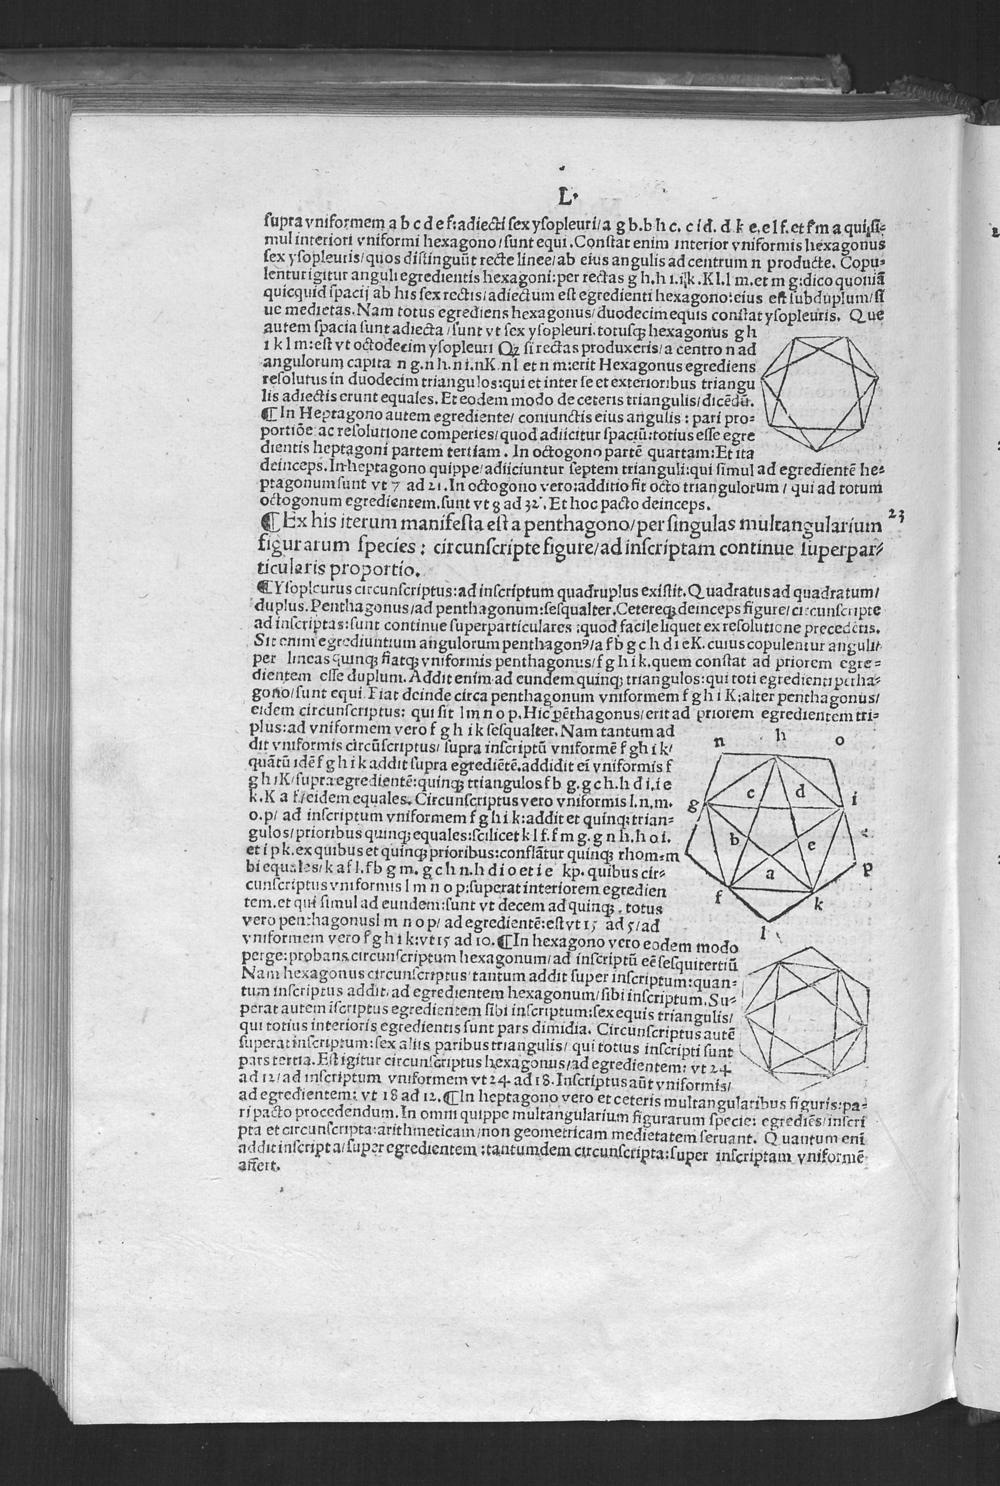 L.
supra vniformem a b c d e f: adiecti sex ysopleuri/a g b. b h c. c i d. d k e. e l f. et f m a qui si⸗
mul interiori vniformi hexagono/sunt equi. Constat enim interior vniformis hexagonus
sex ysopleuris/quos distinguūt recte linee/ab eius angulis ad centrum n producte. Copu⸗
lentur igitur anguli egredientis hexagoni: per rectas g h. h i. i k. K l. l m. et m g: dico quoniā
quicquid spacij ab his sex rectis/adiectum est egredienti hexagono: eius est subduplum/si
ue medietas. Nam totus egrediens hexagonus/duodecim equis constat ysopleuris. Que
autem spacia sunt adiecta/sunt vt sex ysopleuri. totusqꝫ hexagonus g h
i k l m: est vt octodecim ysopleuri Qꝫ si rectas produxeris/a centro n ad
angulorum capita n g. n h. n i. n K. n l et n m: erit Hexagonus egrediens
resolutus in duodecim triangulos: qui et inter se et exterioribus triangu
lis adiectis erunt equales. Et eodem modo de ceteris triangulis/dicēdū.
¶ In Heptagono autem egrediente/coniunctis eius angulis: pari pro⸗
portiōe ac resolutione comperies/quod adijcitur spaciū: totius esse egre
dientis heptagoni partem tertiam. In octogono partē quartam: Et ita
deinceps. In heptagono quippe/adijciuntur septem trianguli: qui simul ad egredientē he⸗
ptagonum sunt vt 7 ad 21. In octogono vero: additio fit octo triangulorum/qui ad totum
octogonum egredientem. sunt vt 8 ad 32. Et hoc pacto deinceps.
¶ Ex his iterum manifesta est a penthagono/per singulas multangularium 23
figurarum species: circunscripte figure/ad inscriptam continue superpar⸗
ticularis proportio.
¶ Ysopleurus circunscriptus: ad inscriptum quadruplus existit. Quadratus ad quadratum/
duplus. Penthagonus/ad penthagonum: sesqualter. Cetereqꝫ deinceps figure/circunscripte
ad inscriptas: sunt continue superparticulares: quod facile liquet ex resolutione precedētis.
Sit enim egredientium angulorum penthagonꝰ/a f b g c h d i e K. cuius copulentur anguli
per lineas quinqꝫ fiatqꝫ vniformis penthagonus/f g h i k. quem constat ad priorem egre⸗
dientem esse duplum. Addit enim ad eundem quinqꝫ triangulos: qui toti egredienti pētha⸗
gono/sunt equi. Fiat deinde circa penthagonum vniformem f g h i K; alter penthagonus/
eidem circunscriptus: qui sit l m n o p. Hic pēthagonus/erit ad priorem egredientem tri⸗
plus: ad vniformem vero f g h i k sesqualter. Nam tantum ad
dit vniformis circūscriptus/supra inscriptū vniformē f g h i k/
quātū idē f g h i k addit supra egrediētē. addidit ei vniformis f
g h i K/supra egredientē: quinqꝫ triangulos f b g. g c h. h d i. i e
k. K a f/eidem equales. Circunscriptus vero vniformis l. n. m.
o. p/ ad inscriptum vniformem f g h i k: addit et quinqꝫ trian⸗
gulos/prioribus quinqꝫ equales: scilicet k l f. f m g. g n h. h o i.
et i p k. ex quibus et quinqꝫ prioribus: conflātur quinqꝫ rhom⸗
bi equales/k a f l. f b g m. g c h n. h d i o et i e kp. quibus cir⸗
cunscriptus vniformis l m n o p; superat interiorem egredien
tem. et qui simul ad eundem: sunt vt decem ad quinqꝫ. totus
vero penthagonus l m n o p/ ad egredientē: est vt 15 ad 5/ad
vniformem vero f g h i k: vt 15 ad 10. ¶ In hexagono vero eodem modo
perge: probans circunscriptum hexagonum/ad inscriptū eē sesquitertiū
Nam hexagonus circunscriptus tantum addit super inscriptum: quan⸗
tum inscriptus addit. ad egredientem hexagonum/sibi inscriptum. Su⸗
perat autem iscriptus egredientem sibi inscriptum: sex equis triangulis/
qui totius interioris egredientis sunt pars dimidia. Circunscriptus autē
superat inscriptum: sex aliis paribus triangulis/ qui totius inscripti sunt
pars tertia. Est igitur circunscriptus hexagonus/ad egredientem: vt 24
ad 12/ad inscriptum vniformem vt 24 ad 18. Inscriptus aūt vniformis/
ad egredientem: vt 18 ad 12. ¶ In heptagono vero et ceteris multangularibus figuris: pa⸗
ri pacto procedendum. In omni quippe multangularium figurarum specie: egrediēs/inscri
pta et circunscripta: arithmeticam/non geometricam medietatem seruant. Quantum eni
addit inscripta/super egredientem: tantumdem circunscripta: super inscriptam vniformē
affert.
n h o
c d
g i
b e
a
m p
f k
l